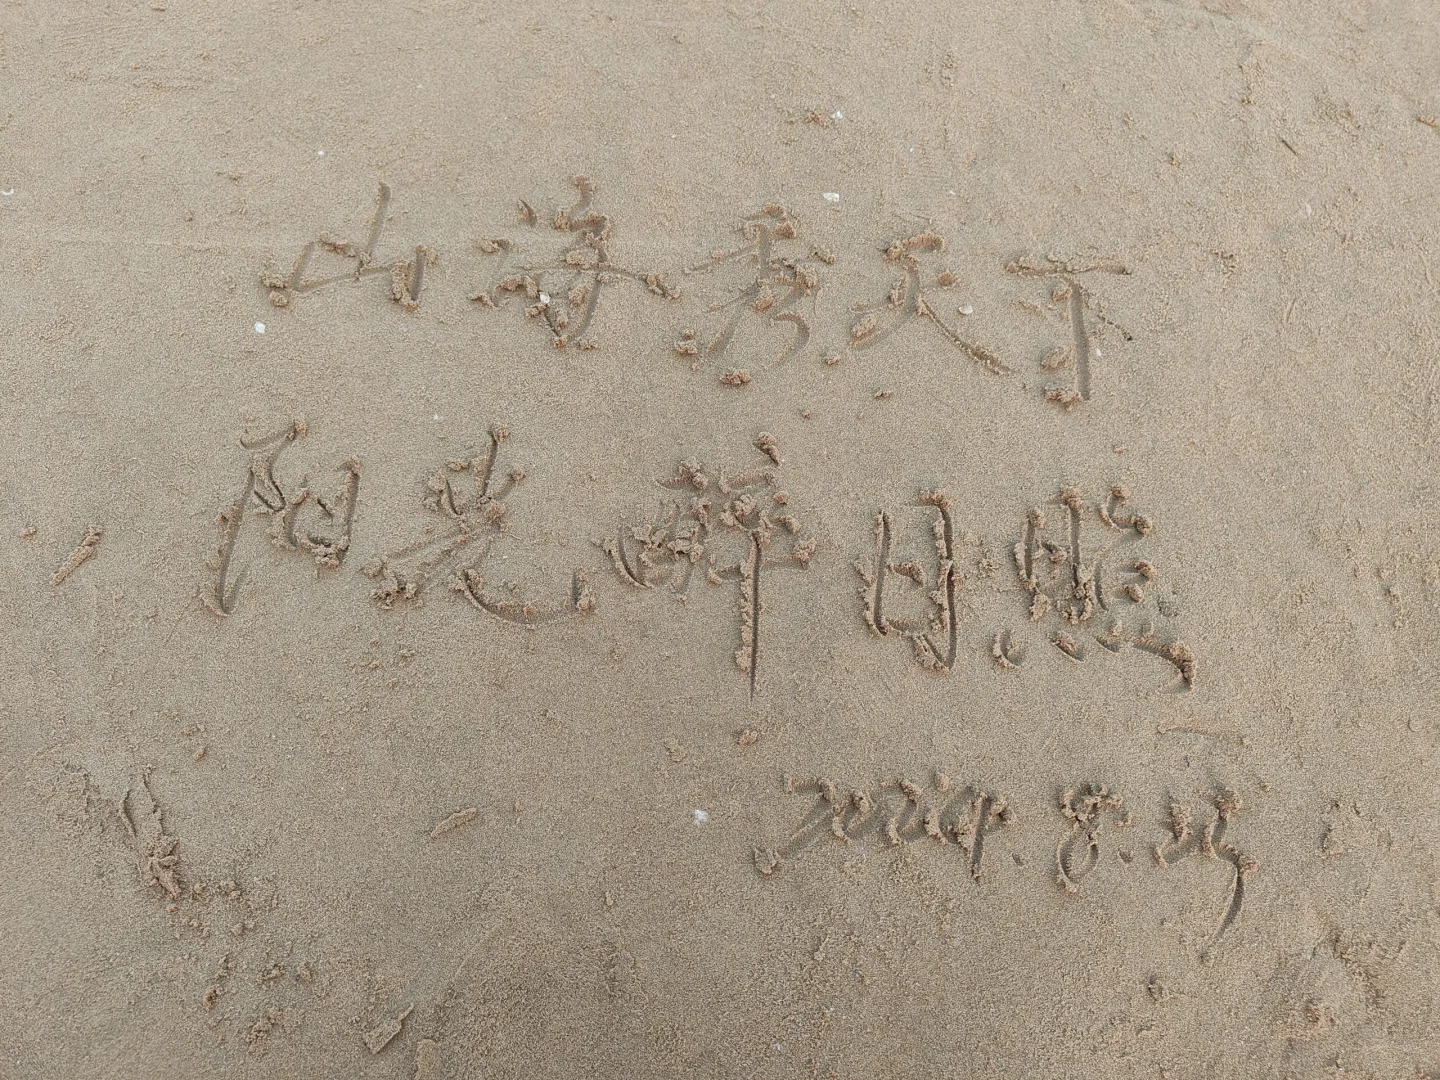 山海秀天下
阳光醉日照
2024.8.25